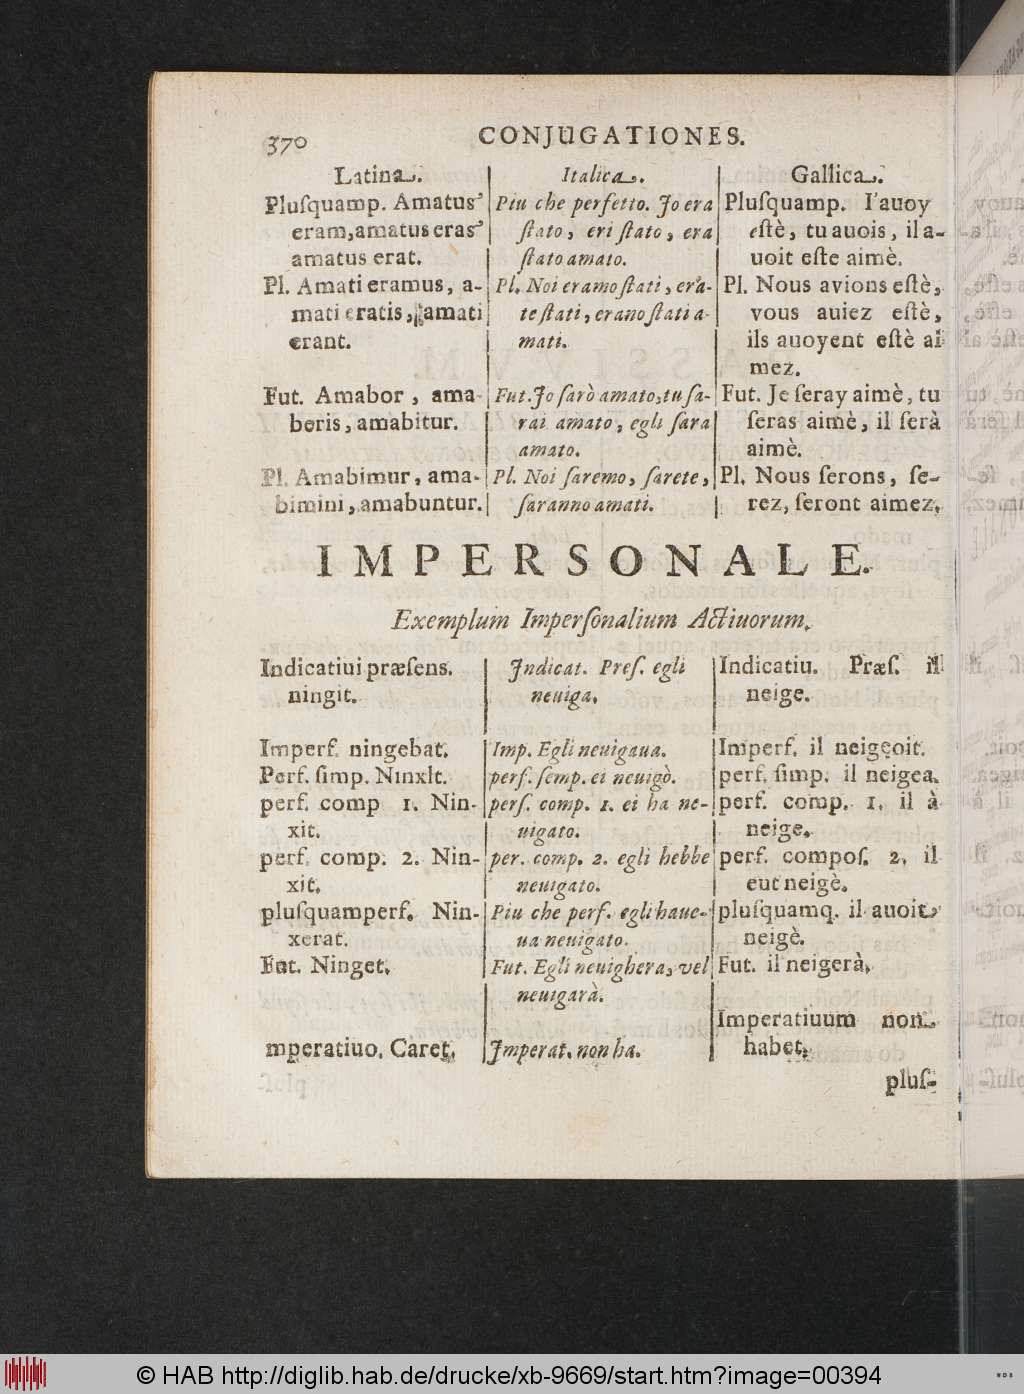 370 CONJUGATIONES.
Latina.
Pluſquamp. Amatus
eram, amatus eras
amatus erat.
Pl. Amati eramus, a-
mati eratis, amati
erant.
Fut. Amabor, ama-
beris, amabitur.
Pl. Amabimur, ama-
bimini, amabuntur.
Italica.
Piu che perfetto. Jo era
ſtato, eri ſtato, era
ſtato amato.
Pl. Noi eramo ſtati, era-
te ſtati, erano ſtati a-
mati.
Fut. Jo ſarò amato, tu ſa-
rai amato, egli ſara
amato.
Pl. Noi ſaremo, ſarete,
ſaranno amati.
Gallica.
Pluſquamp. I'auoy
eſtè, tu auois, il a-
uoit eſte aimè.
Pl. Nous avions eſtè,
vous auiez eſtè,
ils auoyent eſtè ai
mez.
Fut. Je ſeray aimè, tu
ſeras aimè, il ſerà
aimè.
Pl. Nous ſerons, ſe-
rez, ſeront aimez.
IMPERSONALE.
Exemplum Imperſonalium Actiuorum.
Indicatiui præſens.
ningit.
Imperf. ningebat.
Perf. ſimp. Ninxlt.
perf. comp 1. Nin-
xit.
perf. comp. 2. Nin-
xit.
pluſquamperf. Nin-
xerat.
Fut. Ninget.
mperatiuo. Caret.
Jndicat. Preſ. egli
neuiga.
Imp. Egli neuigaua.
perſ. ſemp. ei neuigò.
perſ. comp. 1. ei ha ne-
uigato.
per. comp. 2. egli hebbe
neuigato.
Piu che perf. egli haue-
ua neuigato.
Fut. Egli neuighera, vel
neuigarà.
Jmperat. non ha.
Indicatiu. Præſ. il
neige.
Imperf. il neigeoit.
perf. ſimp. il neigea.
perf. comp. 1. il à
neige.
perf. compoſ. 2. il
eut neigè.
pluſquamq. il auoit
neigè.
Fut. il neigerà.
Imperatiuum non
habet.
pluſ-
© HAB http://diglib.hab.de/drucke/xb-9669/start.htm?image=00394